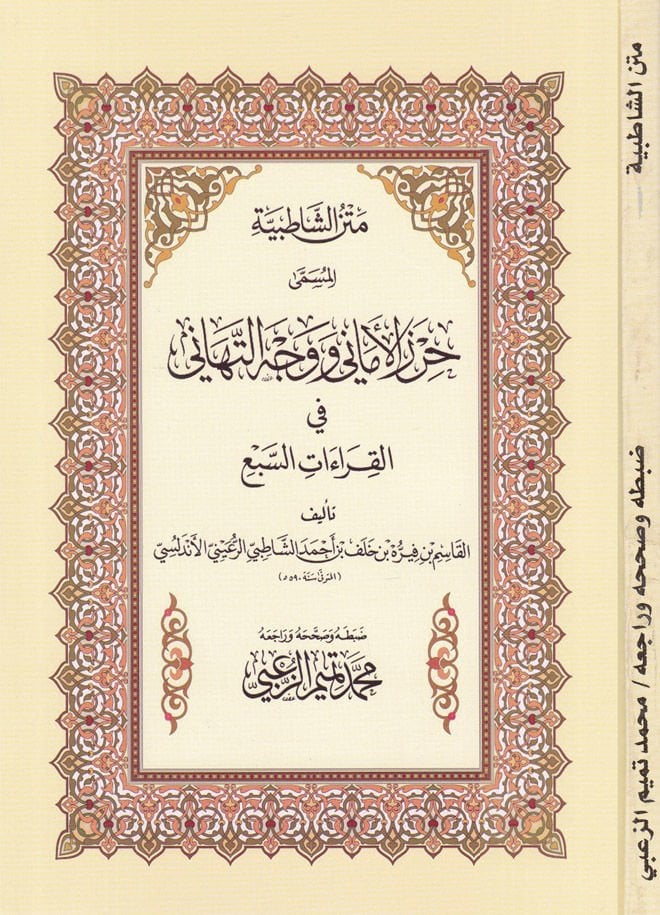 مَتْنُ الشَّاطِبيَّةِ
المُسَمَّى
حِرْزَ الأَمَانِي وَوَجْهَ التَّهَانِي
في
القِرَاءَاتِ السَّبْعِ
تأليف
القَاسِم بْنِ فِيرُّهْ بْن خَلَفِ بْنِ أَحْمَدَ الشَّاطِبِيِّ الرُّعَيْنِيِّ الأَنْدَلُسِيِّ
(المتوفى سنة ٥٩٠ هـ)
ضَبَطَهُ وَصَحَّحَهُ وَرَاجَعَهُ
محمّد تميم الزّعبي
متن الشاطبية
ضبطه وصححه وراجعه / محمد تميم الزعبي